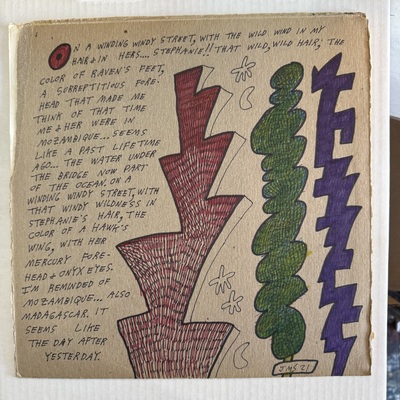 ON A WINDING WINDY STREET, WITH THE WILD WIND IN MY
HAIR & IN HERS.... STEPHANIE!! THAT WILD, WILD HAIR, THE
COLOR OF RAVEN'S FEET,
A SURREPTITIOUS FORE-
HEAD THAT MADE ME
THINK OF THAT TIME
ME & HER WERE IN
MOZAMBIQUE... SEEMS
LIKE A PAST LIFETIME
AGO... THE WATER UNDER
THE BRIDGE NOW PART
OF THE OCEAN. ON A
WINDING WINDY STREET, WITH
THAT WINDY WILDNESS IN
STEPHANIE'S HAIR, THE
COLOR OF A HAWK'S
WING, WITH HER
MERCURY FORE-
HEAD & ONYX EYES.
I'M REMINDED OF
MOZAMBIQUE... ALSO
MADAGASCAR. IT
SEEMS LIKE
THE DAY AFTER
YESTERDAY.
J.M.S. 21